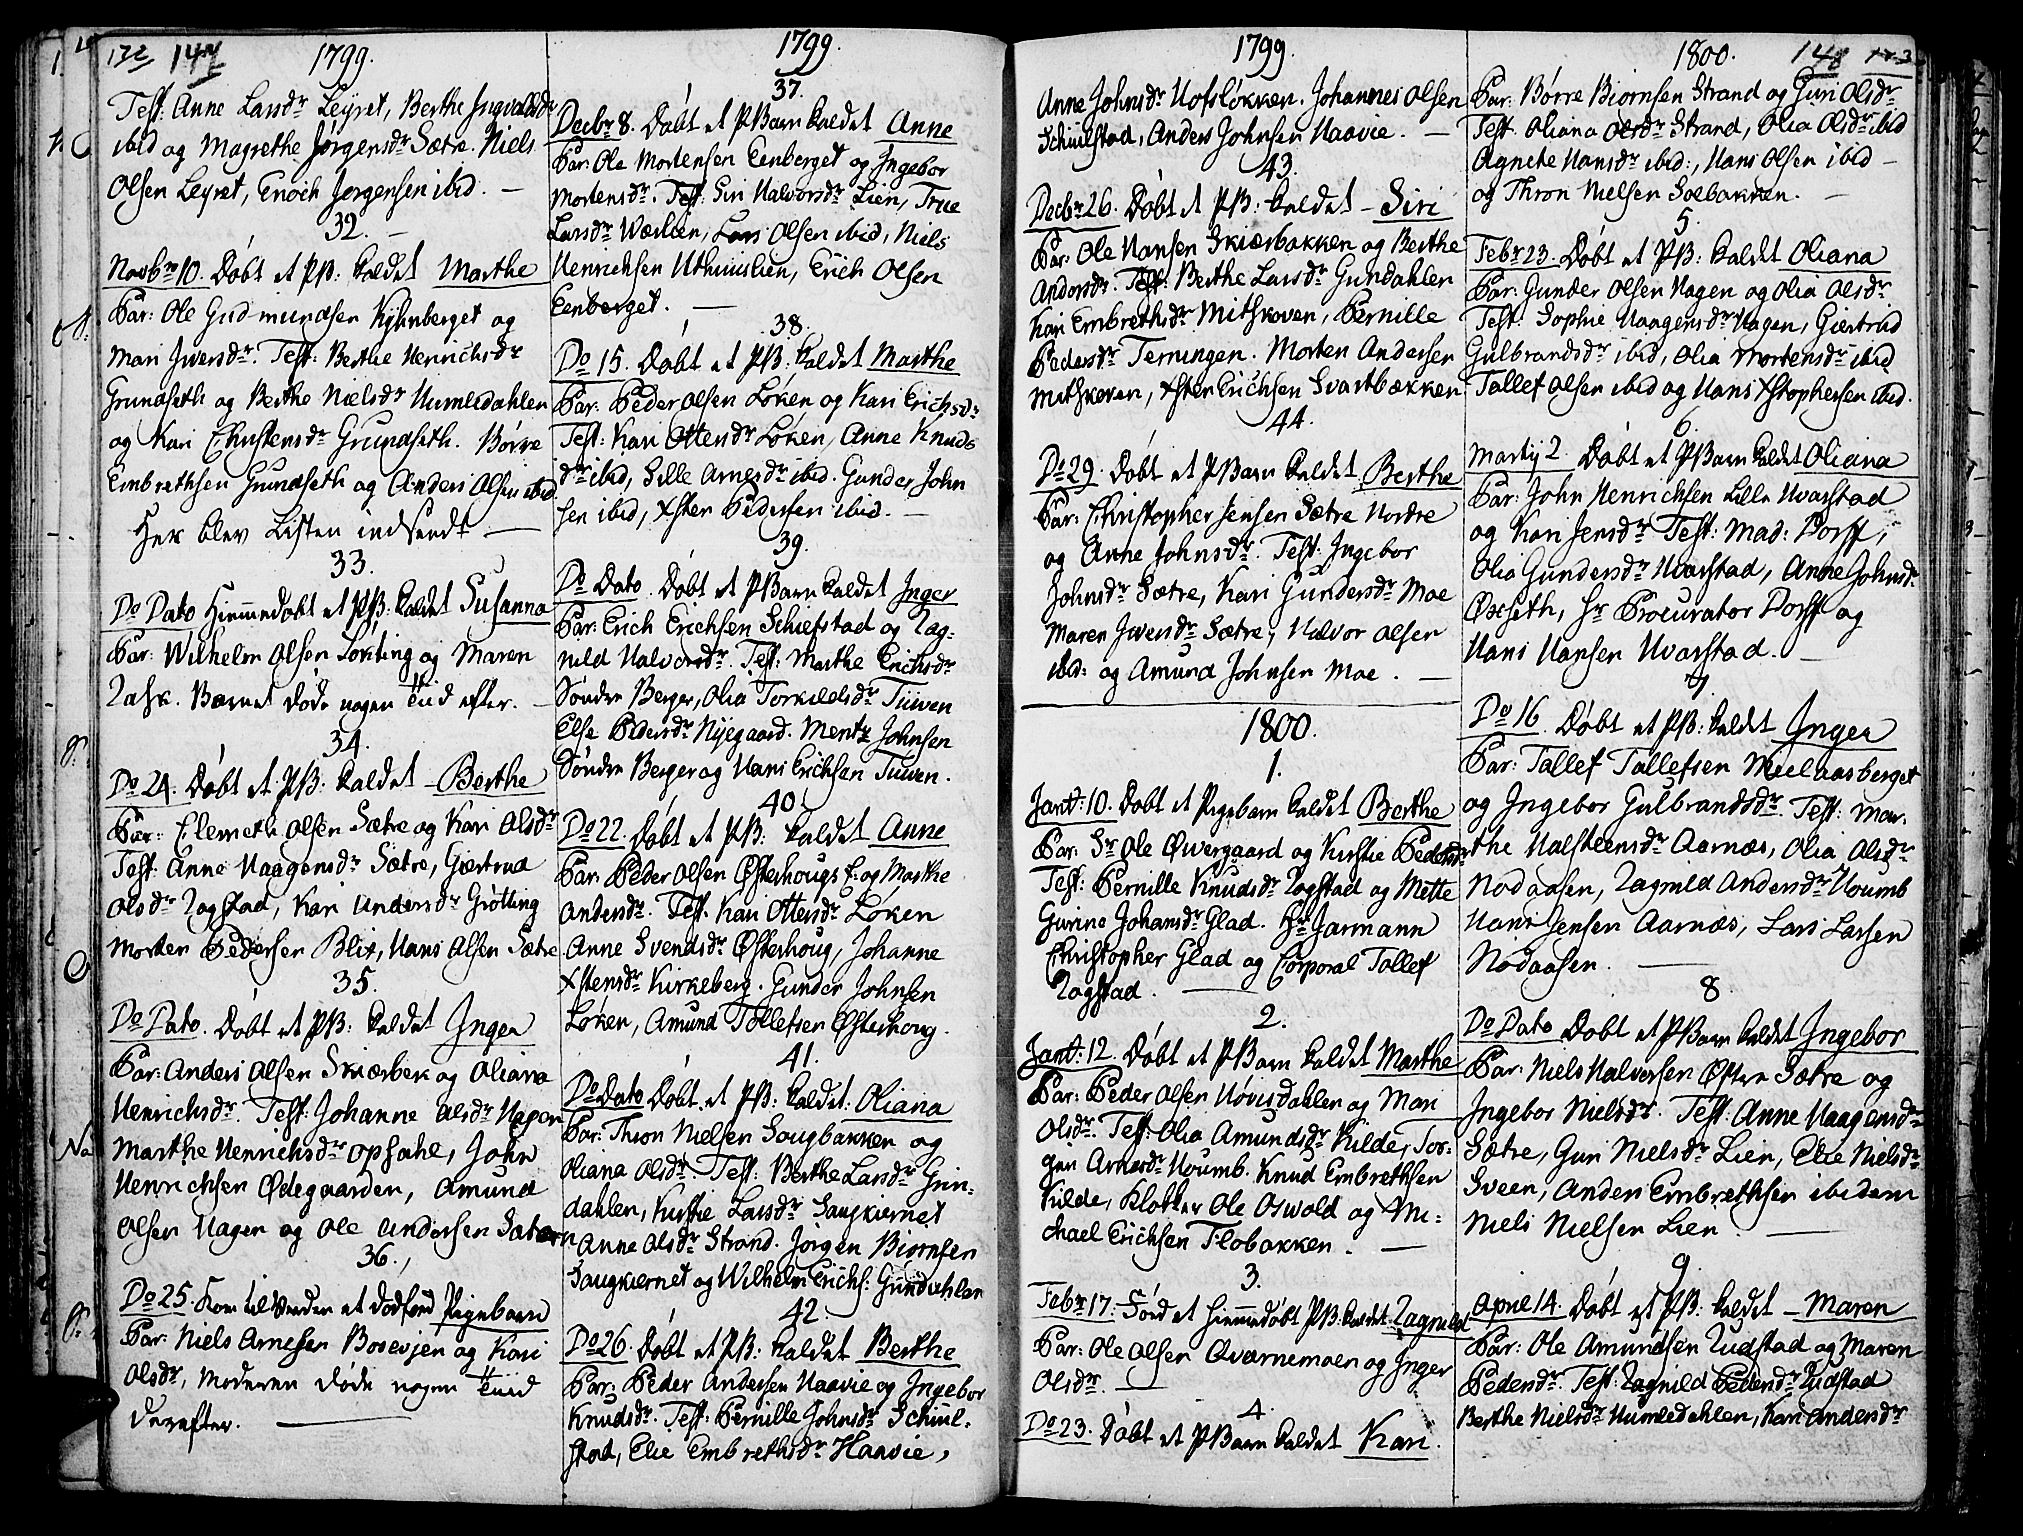 172 147 1799.
Test: Anne Larsdr Leyret, Berthe Ingvaldsdr
ibid og Magrethe Jørgensdr Sætre. Niels
Olsen Leyret, Enoch Jørgensen ibid. —
32. —
Novbr 10. Døbt et PB: kaldet Marthe
Par: Ole Gudmundsen Kylenberget og
Mari Iversdr. Test: Berthe Henrichsdr
Grundseth og Berthe Nielsdr Humledahlen
og Kari Christensdr Grundseth. Børre
Embrethsen Grundseth og Anders Olsen ibid.
Her blev Listen indsendt —
33.
Do Dato Hiemmedøbt et PB: kaldet Susanna
Par: Wilhelm Olsen Løviting og Maren
Rask. Barnet døde nogen Tiid efter. —
34.
Do 24. Døbt et PB: kaldet — Berthe
Par: Elemeth Olsen Sætre og Kari Olsdr
Test: Anne Haagensdr Sætre, Giertrud
Olsdr Rogstad, Kari Andersdr Grøtting
Morten Pedersen Blix, Hans Olsen Sætre
35.
Do Dato. Døbt et PB: kaldet Ingea
Par: Anders Olsen Skiærbek og Oliana
Henrichsdr. Test: Johanne Olsdr Hagen
Marthe Henrichsdr Opsahl, John
Henrichsen Ødegaarden, Amund
Olsen Hagen og Ole Andersen Sæteren
36.
Do 25. Kom til Verden et dødfød Pigebarn
Par: Niels Arnesen Bosevien og Kari
Olsdr, Moderen døde nogen Tiid
derefter. —
1799.
37.
Decbr 8. Døbt et PBarn kaldet Anne
Par: Ole Mortensen Eenberget og Ingebor
Mortensdr. Test: Siri Halvorsdr Lien, True
Larsdr Wæslien, Lars Olsen ibid, Niels
Henrichsen Uthuuslien, Erich Olsen
Eenberget. —
38.
Do 15. Døbt et PB: kaldet Marthe
Par: Peder Olsen Løken og Kari Erichsdr
Test: Kari Ottersdr Løken, Anne Knuds
dr ibid, Sille Arnesdr ibid. Gunder John
sen ibid, Xsten Pedersen ibid. —
39.
Do Dato. Døbt et PBarn kaldet Inger
Par: Erich Erichsen Schiefstad og Rag-
nild Halvorsdr. Test: Marthe Erichsdr
Søndre Berger, Olia Torkildsdr Tuven
Else Pedersdr Nyegaard. Mentz Johnsen
Søndre Berger og Hans Erichsen Tuven.
40.
Do 22. Døbt et PB: kaldet Anne
Par: Peder Olsen Østerhougs E. og Marthe
Andersdr. Test: Kari Ottersdr Løken
Anne Svendsdr Østerhoug, Johanne
Xstensdr Kirkeberg. Gunder Johnsen
Løken, Amund Tollefsen Østerhoug.
41.
Do Dato Døbt et PB: kaldet: Oliana
Par: Thron Nielsen Saugbakken og
Oliana Olsdr. Test: Berthe Larsdr Grin-
dahlen, Kirstie Larsdr Saugkiernet
Anne Olsdr Strand. Jørgen Biørnsen
Saugkiernet og Wilhelm Erichs: Gundahlen
42.
Do 26. Døbt et PB: kaldet Berthe
Par: Peder Andersen Haavie og Ingebor
Knudsdr. Test: Pernille Johnsdr Schiul-
stad, Elie Embrethsdr Haavie,
1799.
Anne Johnsdr Hofsløkken. Johannes Olsen
Schiulstad, Anders Johnsen Haavie. —
43.
Decbr 26. Døbt et PB: kaldet — Siri
Par: Ole Hansen Skiærbakken og Berthe
Andersdr. Test: Berthe Larsdr Gundahlen
Kari Embrethsdr Mitskoven, Pernille
Pedersdr Terningen. Morten Andersen
Mitskoven, Xsten Erichsen Svartbækken
44.
Do 29. Døbt et PBarn kaldet Berthe
Par: Christopher Jensen Sætre Nordre
og Anne Johnsdr. Test: Ingebor
Johnsdr Sætre, Kari Gundersdr Moe
Maren Iversdr Sætre, Halvor Olsen
ibid: og Amund Johnsen Moe. —
1800.
1.
Janv: 10. Døbt et Pigebarn kaldet Berthe
Par: Sr Ole Øvergaard og Kirstie Pedersdr
Test: Pernille Knudsdr Rogstad og Mette
Gurine Johansdr Glad. Hr Jarmann
Christopher Glad og Corporal Tollef
Rogstad. —
2.
Janv: 12. Døbt et PBarn kaldet Marthe
Par: Peder Olsen Hovisdahlen og Mari
Olsdr. Test: Olia Amundsdr Kilde, Tor-
gen Arnesdr Houmb. Knud Embrethsen
Kilde, Klokker Ole Oswold og Mi-
chael Erichsen Flobakken. —
3.
Febr 17. Født et hiemmedøbt PB: kaldet Ragnild
Par: Ole Olsen Qværnemoen og Inger
Olsdr. —
4.
Do 23. Døbt et PBarn kaldet Kari.
1800. 148 173
Par: Børre Biørnsen Strand og Guri Olsdr
Test: Oliana Olsdr Strand, Olia Olsdr ibid
Agnethe Hansdr ibid:, Hans Olsen ibid —
og Thron Nielsen Solbakken. —
5.
Febr 23. Døbt et PB: kaldet Oliana
Par: Gunder Olsen Hagen og Olia Olsdr
Test: Sophie Haagensdr Hagen, Giertrud
Gulbrandsdr ibid, Olia Mortensdr ibid
Tollef Olsen ibid og Hans Xstophersen ibid.
6.
Martij 2. Døbt et PBarn kaldet Oliana
Par: John Henrichsen Lille Hvarstad
og Kari Jensdr Test: Mad: Dorff,
Olia Gundersdr Hvarstad, Anne Johnsdr
Øxseth, Hr Procurator Dorff og
Hans Hansen Hvarstad. —
7.
Do 16. Døbt et PB: kaldet Ingea
Par: Tollef Tollefsen Mælaasberget
og Ingebor Gulbrandsdr. Test: Mar-
the Halsteensdr Aarnæs, Olia Olsdr
Nodaasen, Ragnild Andersdr Houmb
Hans Jensen Aarnæs, Lars Larsen
Nodaasen. —
8
Do Dato Døbt et PBarn kaldet Ingebor
Par: Niels Halvorsen Østre Sætre og
Ingebor Nielsdr. Test: Anne Haagensdr
Sætre, Guri Nielsdr Lien, Elie Nielsdr
Sveen, Anders Embrethsen ibidem
Niels Nielsen Lien. —
9.
April 14. Døbt et PB: kaldet — Maren
Par: Ole Amundsen Rudstad og Maren
Pedersdr. Test: Ragnild Pedersdr Rudstad
Berthe Nielsdr Humledahlen, Kari Andersdr